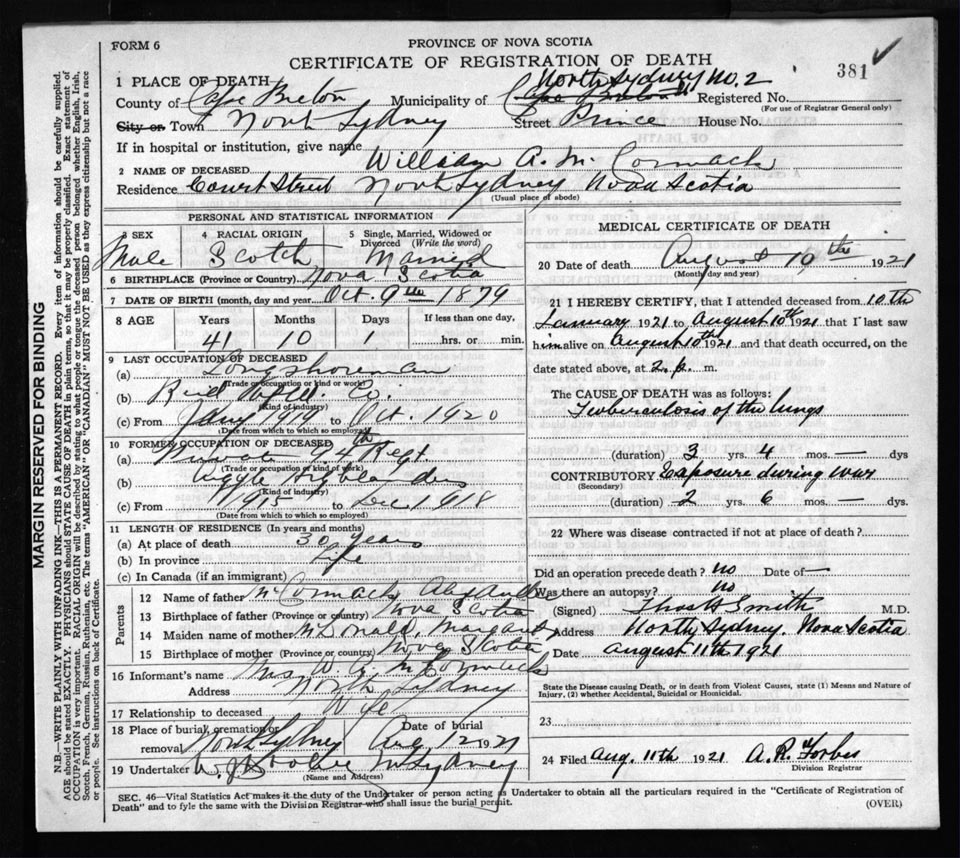 FORM 6
PROVINCE OF NOVA SCOTIA
CERTIFICATE OF REGISTRATION OF DEATH
381
1 PLACE OF DEATH North Sydney No. 2
County of Cape Breton Municipality of Cape Breton Registered No.
(For use of Registrar General only)
City or Town North Sydney Street Prince House No.
If in hospital or institution, give name
2 NAME OF DECEASED William A. McCormack
Residence Court Street North Sydney Nova Scotia
(Usual place of abode)
PERSONAL AND STATISTICAL INFORMATION
3 SEX 4 RACIAL ORIGIN 5 Single, Married, Widowed or Divorced (Write the word)
Male Scotch Married
6 BIRTHPLACE (Province or Country) Nova Scotia
7 DATE OF BIRTH (month, day and year) Oct. 9th 1879
8 AGE Years Months Days If less than one day,
41 10 1 hrs. or min.
9 LAST OCCUPATION OF DECEASED
(a) Longshoreman
(Trade or occupation or kind or work)
(b) Reid Nfld. Co.
(Kind of industry)
(c) From 1919 to Oct. 1920
(Date from which to which so employed)
10 FORMER OCCUPATION OF DECEASED
(a) Private 94th Regt
(Trade or occupation of kind of work)
(b) Argyle Highlanders
(Kind of industry)
(c) From 1915 to Dec 1918
(Date from which to which so employed)
11 LENGTH OF RESIDENCE (In years and months)
(a) At place of death 30 years
(b) In province Life
(c) In Canada (if an immigrant)
Parents
12 Name of father McCormack, Alexander
13 Birthplace of father (Province or country) Nova Scotia
14 Maiden name of mother McDonald, Margaret
15 Birthplace of mother (Province or country) Nova Scotia
16 Informant's name Mrs W. A. McCormack
Address North Sydney
17 Relationship to deceased Wife
18 Place of burial, cremation or removal Date of burial
North Sydney Aug 12 1921
19 Undertaker N. Sydney
(Name and Address)
MEDICAL CERTIFICATE OF DEATH
20 Date of death August 10th 1921
(Month day and year)
21 I HEREBY CERTIFY, that I attended deceased from 10th
January 1921 to August 10th 1921 that I last saw
him alive on August 10th 1921 and that death occurred, on the
date stated above, at 2 p. m.
The CAUSE OF DEATH was as follows:
Tuberculosis of the lungs
(duration) 3 yrs. 4 mos. — dys
CONTRIBUTORY Exposure during war
(Secondary)
(duration) 2 yrs. 6 mos. — dys.
22 Where was disease contracted if not at place of death?
Did an operation precede death? no Date of —
Was there an autopsy? no
(Signed) Thos H Smith M.D.
Address North Sydney. Nova Scotia
Date August 11th 1921
State the Disease causing Death, or in death from Violent Causes, state (1) Means and Nature of
Injury, (2) whether Accidental, Suicidal or Homicidal.
23
24 Filed Aug. 11th 1921 A. R. Forbes
Division Registrar
SEC. 46—Vital Statistics Act makes it the duty of the Undertaker or person acting as Undertaker to obtain all the particulars required in the "Certificate of Registration of
Death" and to fyle the same with the Division Registrar who shall issue the burial permit.
(OVER)
MARGIN RESERVED FOR BINDING
N.B.—WRITE PLAINLY WITH UNFADING INK—THIS IS A PERMANENT RECORD. Every item of information should be carefully supplied.
AGE should be stated EXACTLY. PHYSICIANS should STATE CAUSE OF DEATH in plain terms, so that it may be properly classified. Exact statement of
OCCUPATION is very important. RACIAL ORIGIN will be described by stating to what people or tongue the deceased person belonged whether English, Irish,
Scotch, French, German, Russian, Ruthenian, etc. The terms "AMERICAN" OR "CANADIAN" MUST NOT BE USED as they express citizenship but not a race
or people. See instructions on back of Certificate.